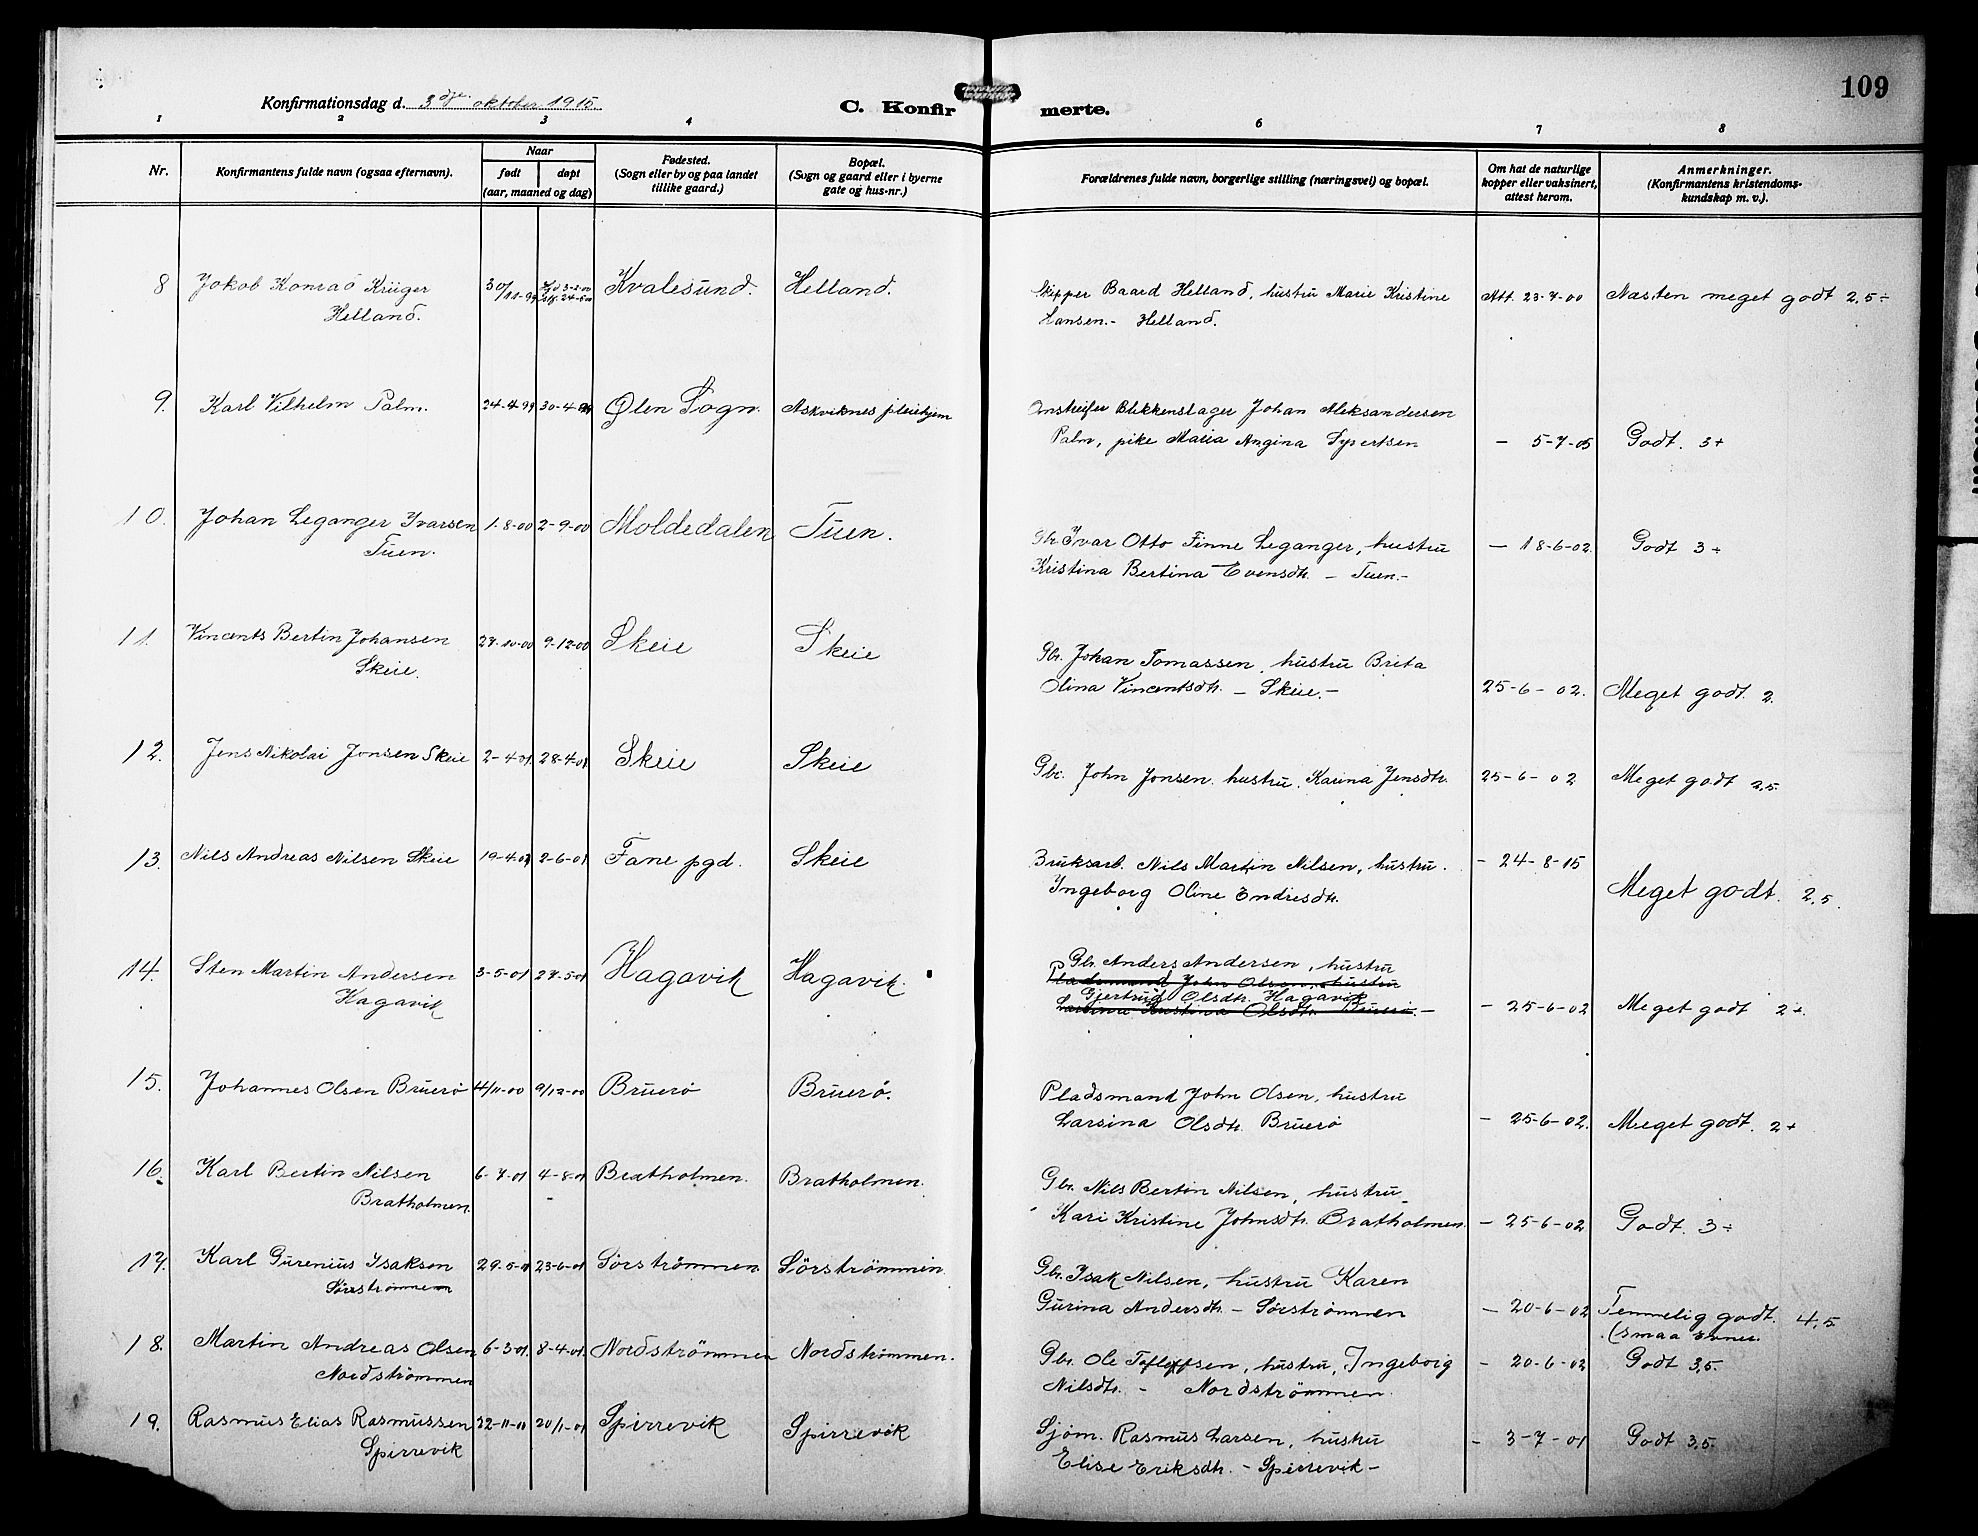 109
Konfirmationsdag d. 3dje oktober 1915.
C. Konfirmerte.
1 2 3 4 5 6 7 8
Nr.
Konfirmantens fulde navn (ogsaa efternavn).
Naar
født døpt
(aar, maaned og dag)
Fødested.
(Sogn eller by og paa landet
tillike gaard.)
Bopæl.
(Sogn og gaard eller i byerne
gate og hus-nr.)
Forældrenes fulde navn, borgerlige stilling (næringsvei) og bopæl.
Om hat de naturlige
kopper eller vaksinert,
attest herom.
Anmerkninger.
(Konfirmantens kristendoms-
kundskap m. v.).
8 Jakob Konrad Krüger 30/11-99 3-2-00 Kvalesund. Helland. Skipper Baard Helland, hustru Marie Kristine Att. 23-7-00 Næsten meget godt 2,5÷
Helland. 24-6-00 Hansen.- Helland.
9. Karl Vilhelm Palm. 24-4-99 30-4-99 Ølen Sogn. Askviknes pleiehjem Omstreifer Blikkenslager Johan Aleksandersen
Palm, pike Maria Angina Syvertsen - 5-7-05 Godt. 3+
10. Johan Leganger Ivarsen 1-8-00 2-9-00 Moldedalen Tuen. Gbr Ivar Otto Finne Leganger, hustru - 18-6-02. Godt 3÷
Tuen. Kristina Bertina Evensdtr. - Tuen.-
11. Vincents Bertin Johansen 27-10-00 9-12-00 Skeie Skeie Gbr. Johan Tomassen, hustru Brita
Skeie. Olina Vincentsdtr. - Skeie.- 25-6-02. Meget godt. 2.
12. Jens Nikolai Jonsen Skeie 2-4-01. 28-4-01 Skeie Skeie Gbr. John Jonsen, hustru, Karina Jensdtr. 25-6-02 Meget godt 2,5.
13. Nils Andreas Nilsen Skeie 19-4-01 2-6-01 Fane pgd. Skeie Bruksarb. Nils Martin Nilsen, hustru. - 24-8-15
Ingeborg Oline Endresdtr. Meget godt. 2,5.
14. Sten Martin Andersen 3-5-01 27-5-01 Hagavik Hagavik. Gbr. Anders Andersen, hustru
Pladsmand John Olsen, hustru
Hagavik Gjertrud Olsdtr. Hagavik
Larsina Kristina Olsdtr. Bruerø.- - 25-6-02 Meget godt 2+.
15. Johannes Olsen Bruerø 4/11-00 9/12-00 Bruerø Bruerø. Pladsmand John Olsen, hustru
Larsina Olsdtr. Bruerø - 25-6-02. Meget godt. 2+
16. Karl Bertin Nilsen 6-7-01 4-8-01 Bratholmen. Bratholmen. Gbr. Nils Bertin Nilsen, hustru
Bratholmen. Kari Kristine Johnsdtr. Bratholmen. - 25-6-02 Godt. 3÷
17. Karl Gurenius Isaksen 29-5-01 23-6-01 Sörströmmen Sörströmmen. Gbr. Isak Nilsen, hustru Karen
Sörströmmen Gurina Andersdtr. - Sörströmmen - 20-6-02 Temmelig godt. 4,5
(smaa evner.
18. Martin Andreas Olsen 6-3-01. 8-4-01. Nordströmmen Nordströmmen. Gbr. Ole Tollefsen, hustru, Ingeborg - 20-6-02 Godt 3,5.
Nordströmmen Nilsdtr. - Nordströmmen.
19. Rasmus Elias Rasmussen 22-11-00 20/1-01 Spirrevik Spirrevik Sjöm. Rasmus Larsen, hustru - 3-7-01 Godt 3,5.
Spirrevik Elise Eriksdtr. - Spirrevik -